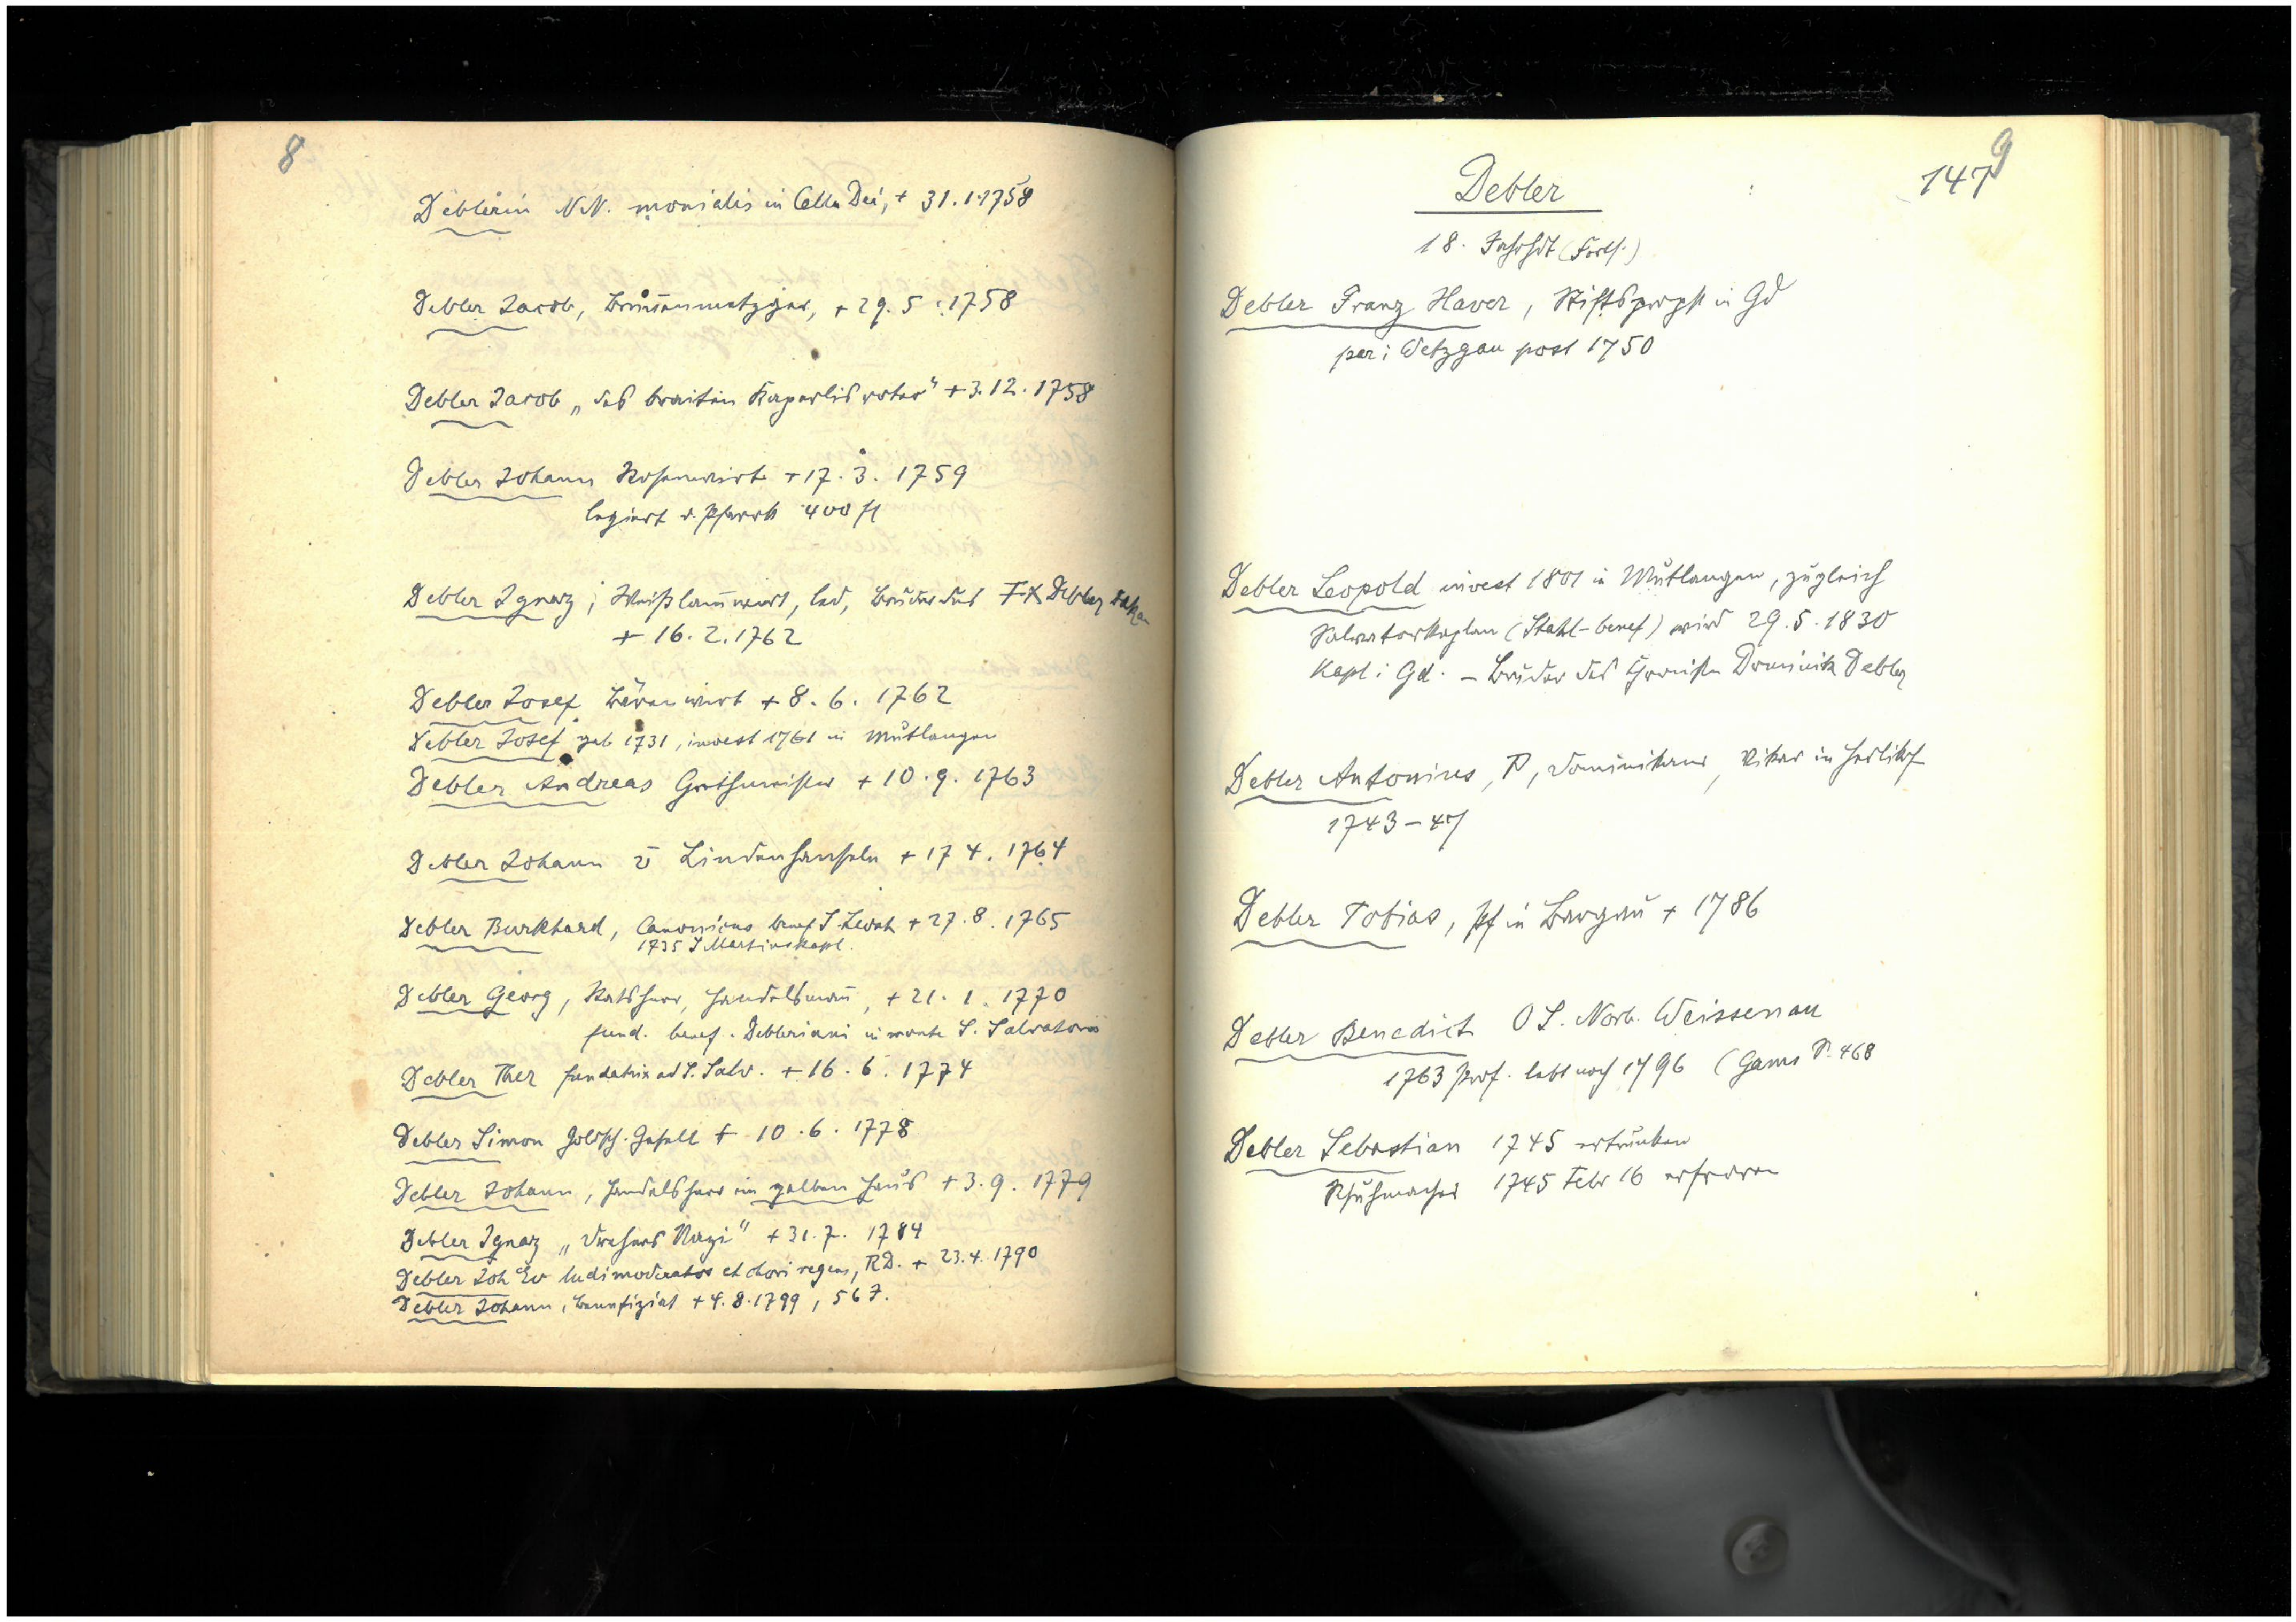 8
Deblerin N.N. monialis in Cella Dei, + 31.1.1758
Debler Jacob, Brunnenmetzger, + 29.5.1758
Debler Jacob „des braiten Kasperlis vater" + 3.12.1758
Debler Johann Rosenwirt + 17.3.1759
legiert d. Pfarrk 400 fl
Debler Ignaz, Weißlam̄wirt, led, Bruder des FX Debler Dekan
+ 16.2.1762
Debler Josef Bärenwirt + 8.6.1762
Debler Josef geb 1731, invest 1761 in Mutlangen
Debler Andreas Grethmeister + 10.9.1763
Debler Johann v Lindenhanseln + 17 4. 1764
Debler Burkhard, Canonicus benef S. Leonh + 27.8.1765
1735 S Martinskapl.
Debler Georg, Ratsherr, Handelsman̄, + 21.1.1770
fund. benef. Debleriani in monte S. Salvatoris
Debler Ther fundatrix ad S. Salv. + 16.6.1774
Debler Simon Goldsch. Gesell + 10.6.1778
Debler Johann, Handelsherr im gelben Haus + 3.9.1779
Debler Ignaz „Drehers Nazi" + 31.7.1784
Debler Joh Ev ludimoderator et chori regens, RD. + 23.4.1790
Debler Johann, Benefiziat + 4.8.1799, 56 J.
9
147
Debler
18. Jahrhdt (Forts.)
Debler Franz Xaver, Stiftspropst in Gd
par: Wetzgau post 1750
Debler Leopold invest 1801 in Mutlangen, zugleich
Salvatorkaplan (Stahl-benef) wird 29.5.1830
Kapl: Gd. – Bruder des Chronisten Dominik Debler
Debler Antonius, P, Dominikaner, Vikar in Herlikf
1743–47
Debler Tobias, Pf in Bargau + 1786
Debler Benedict O S. Norb. Weissenau
1763 Prof. lebt noch 1796 (Gams S. 468
Debler Sebastian 1745 ertrunken
Schuhmacher 1745 Febr 16 erfroren